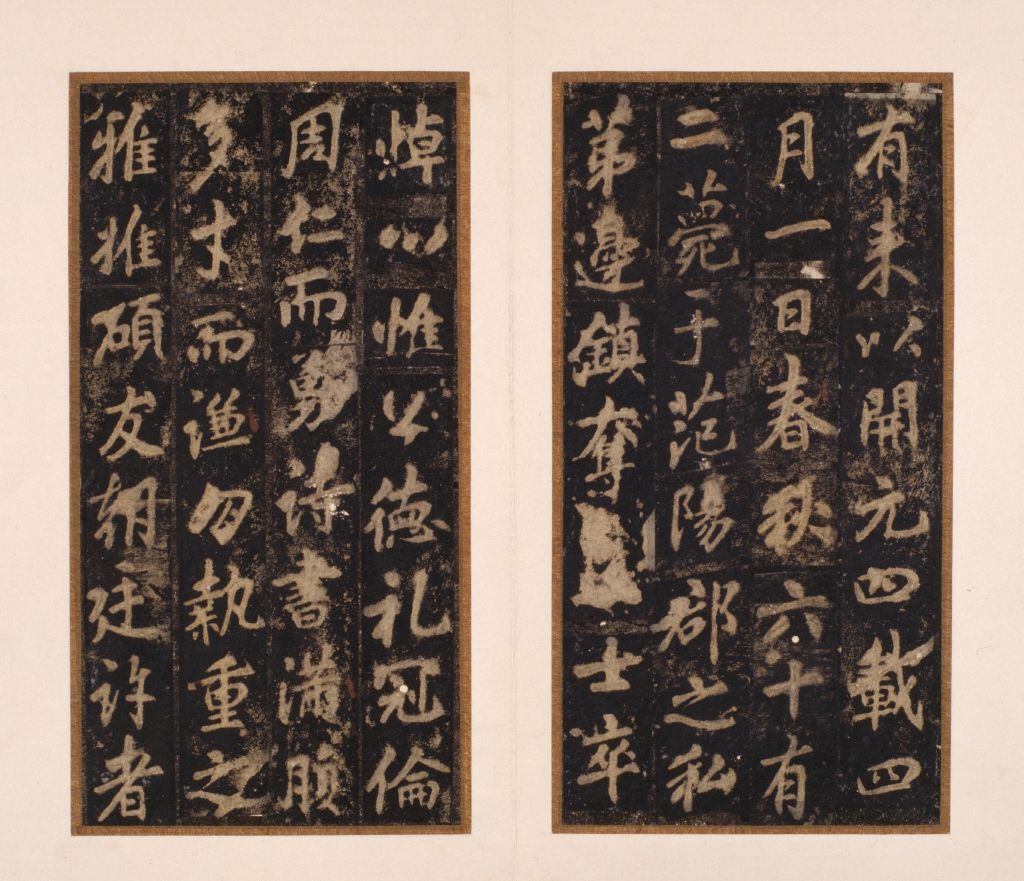 有来以開元四載四
月一日春秋六十有
二薨于范陽郡之私
苐邊鎮奪士卒
悼心惟公德礼冠倫
周仁而勇詩書滿腹
多才而勿執重之
雅推碩友朝廷許者